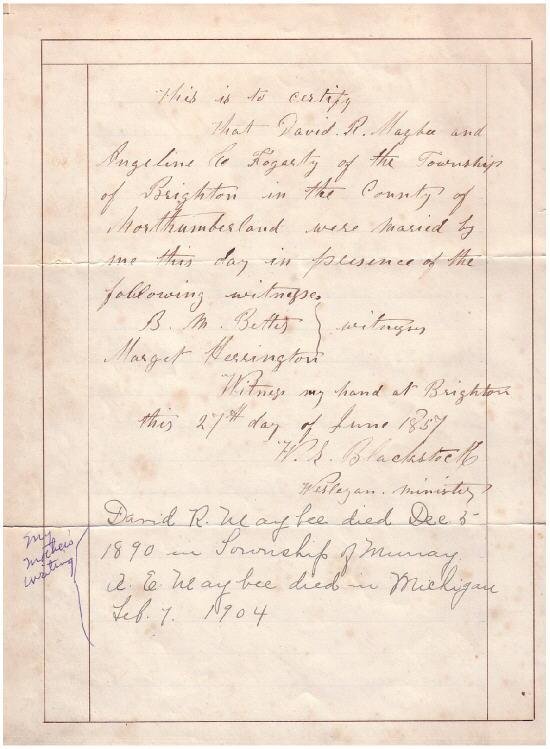 This is to certify
that David. R. Maybee and
Angeline E Fogarty of the Township
of Brighton in the County of
Northumberland were maried by
me this day in presence of the
following witneses
B. M. Bettes } witneses
Marget Herrington
Witness my hand at Brighton
this 27th day of June 1857
W. S. Blackstock
Wesleyan. minister
David R. Maybee died Dec 5
1890 in Township of Murray.
A. E Maybee died in Michigan
Feb. 7. 1904
My
mother's
writing